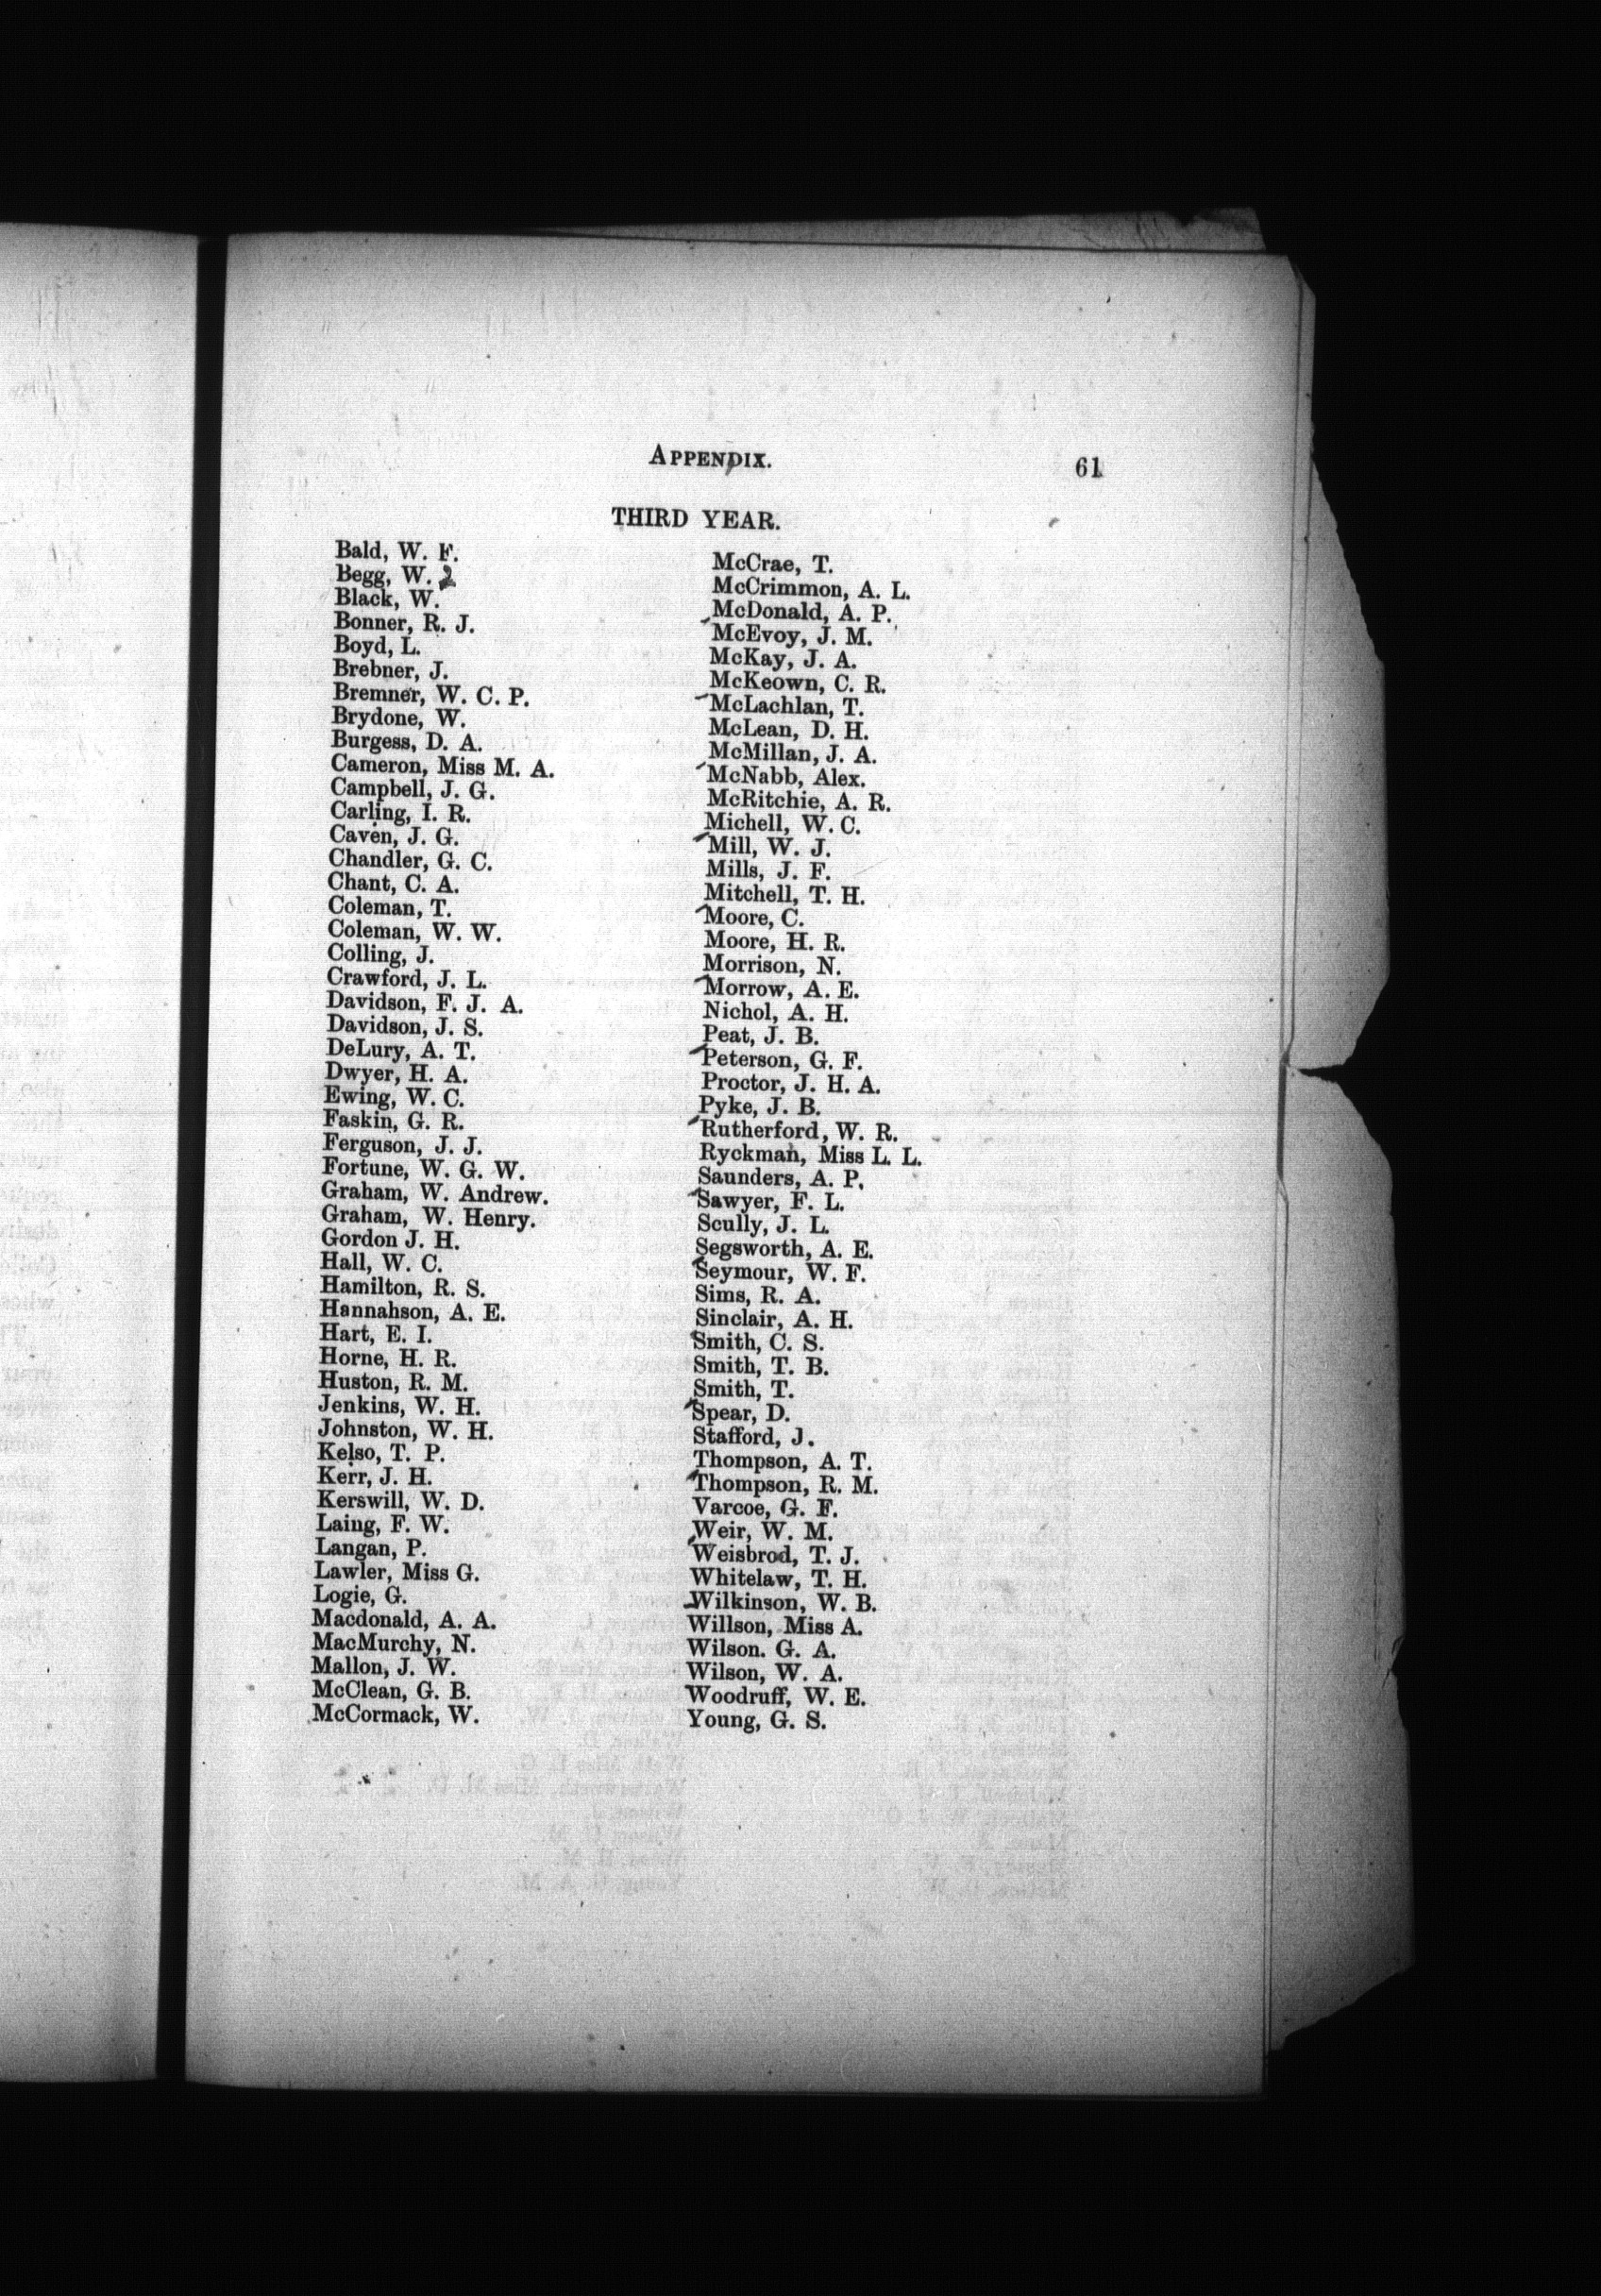 APPENDIX.
61
THIRD YEAR.
Bald, W. F.
Begg, W. 2
Black, W.
Bonner, R. J.
Boyd, L.
Brebner, J.
Bremner, W. C. P.
Brydone, W.
Burgess, D. A.
Cameron, Miss M. A.
Campbell, J. G.
Carling, I. R.
Caven, J. G.
Chandler, G. C.
Chant, C. A.
Coleman, T.
Coleman, W. W.
Colling, J.
Crawford, J. L.
Davidson, F. J. A.
Davidson, J. S.
DeLury, A. T.
Dwyer, H. A.
Ewing, W. C.
Faskin, G. R.
Ferguson, J. J.
Fortune, W. G. W.
Graham, W. Andrew.
Graham, W. Henry.
Gordon J. H.
Hall, W. C.
Hamilton, R. S.
Hannahson, A. E.
Hart, E. I.
Horne, H. R.
Huston, R. M.
Jenkins, W. H.
Johnston, W. H.
Kelso, T. P.
Kerr, J. H.
Kerswill, W. D.
Laing, F. W.
Langan, P.
Lawler, Miss G.
Logie, G.
Macdonald, A. A.
MacMurchy, N.
Mallon, J. W.
McClean, G. B.
McCormack, W.
McCrae, T.
McCrimmon, A. L.
McDonald, A. P.
McEvoy, J. M.
McKay, J. A.
McKeown, C. R.
McLachlan, T.
McLean, D. H.
McMillan, J. A.
McNabb, Alex.
McRitchie, A. R.
Michell, W. C.
Mill, W. J.
Mills, J. F.
Mitchell, T. H.
Moore, C.
Moore, H. R.
Morrison, N.
Morrow, A. E.
Nichol, A. H.
Peat, J. B.
Peterson, G. F.
Proctor, J. H. A.
Pyke, J. B.
Rutherford, W. R.
Ryckman, Miss L. L.
Saunders, A. P.
Sawyer, F. L.
Scully, J. L.
Segsworth, A. E.
Seymour, W. F.
Sims, R. A.
Sinclair, A. H.
Smith, C. S.
Smith, T. B.
Smith, T.
Spear, D.
Stafford, J.
Thompson, A. T.
Thompson, R. M.
Varcoe, G. F.
Weir, W. M.
Weisbrod, T. J.
Whitelaw, T. H.
Wilkinson, W. B.
Willson, Miss A.
Wilson. G. A.
Wilson, W. A.
Woodruff, W. E.
Young, G. S.